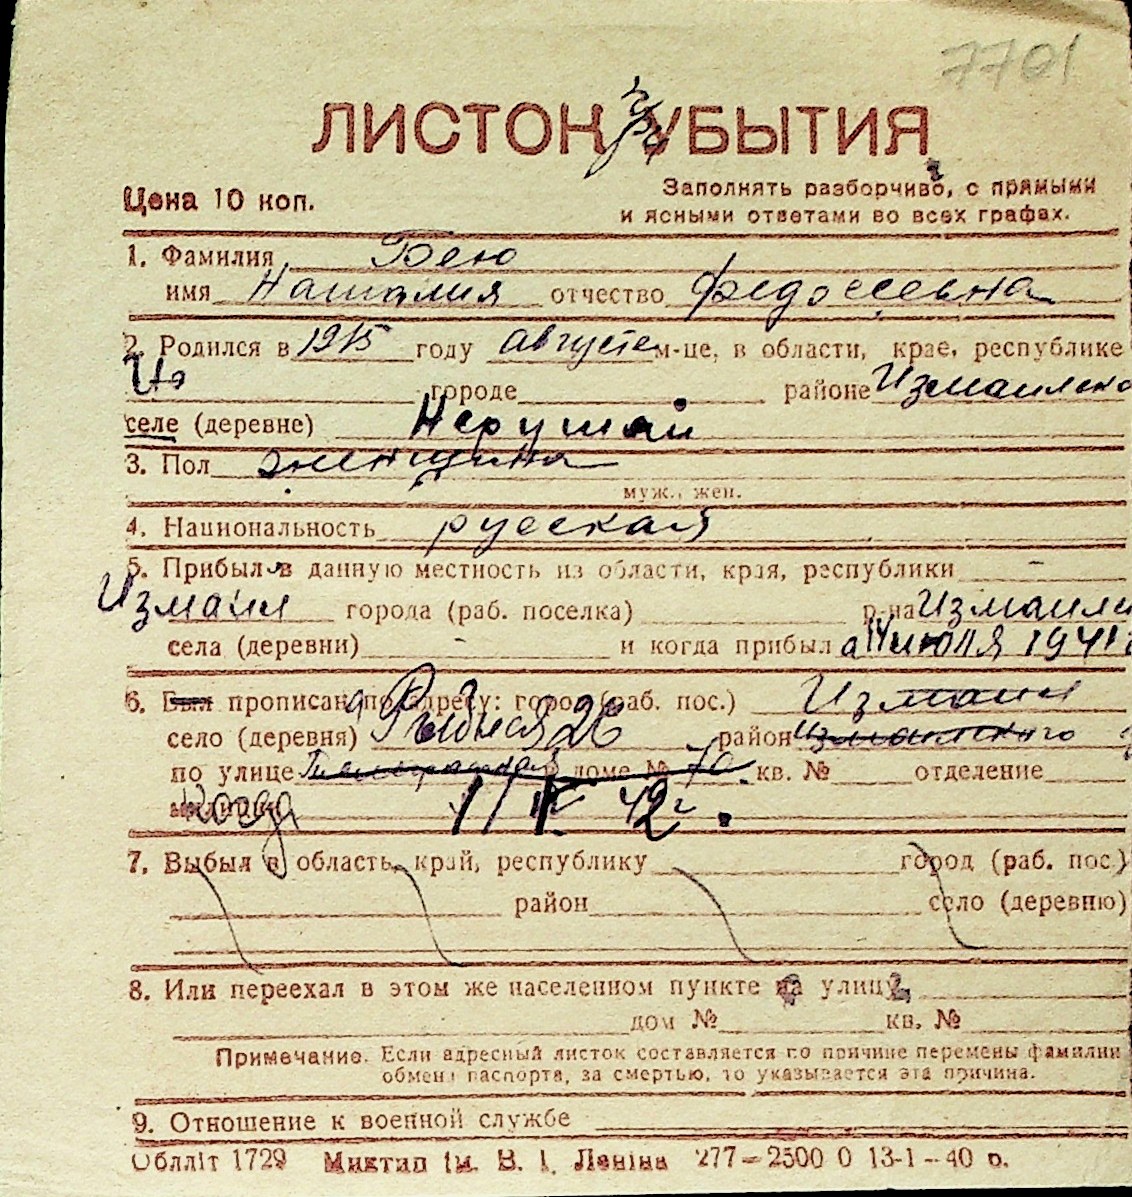 7701
ЛИСТОК УБЫТИЯ
Цена 10 коп.
Заполнять разборчиво, с прямыми
и ясными ответами во всех графах.
1. Фамилия Бею
имя Наталия отчество Федосеевна
2. Родился в 1915 году августе м-це, в области, крае, республике
городе районе Измаилско
селе (деревне) Нерушай
3. Пол женщина
муж., жен.
4. Национальность русская
5. Прибыл в данную местность из области, края, республики -
Измаил города (раб. поселка) р-на Измаил
села (деревни) - и когда прибыл июля 1941
6. Был прописан по адресу: город (раб. пос.) Измаил
село (деревня) Рыбная 26 район Измаилского
по улице Телеграфная в доме № 70 кв. № отделение
когда 1/IX 42 г.
7. Выбыл в область, край, республику город (раб. пос.)
район село (деревню)
8. Или переехал в этом же населенном пункте на улицу
дом № кв. №
Примечание. Если адресный листок составляется по причине перемены фамилии
обмена паспорта, за смертью, то указывается эта причина.
9. Отношение к военной службе
Облліт 1729 Миктип ім. В. І. Леніна 277—2500 0 13-1-40 р.